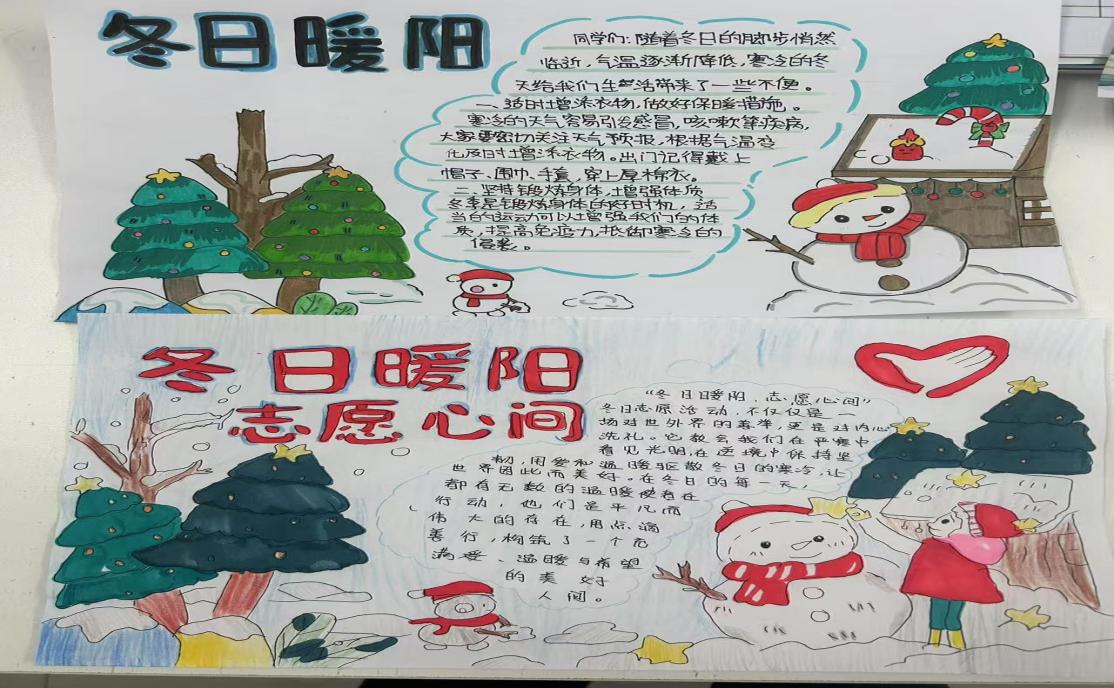 冬日暖阳
同学们:随着冬日的脚步悄然
临近,气温逐渐降低,寒冷的冬
天给我们生活带来了一些不便。
一、适时增添衣物,做好保暖措施。
寒冷的天气容易引发感冒,咳嗽等疾病,
大家要密切关注天气预报,根据气温变
化及时增添衣物。出门记得戴上
帽子、围巾、手套,穿上厚棉衣。
二、坚持锻炼身体,增强体质
冬季是锻炼身体的好时机,适
当的运动可以增强我们的体
质,提高免疫力,抵御寒冷的
侵袭。
冬日暖阳
志愿心间
“冬日暖阳,志愿心间”
冬日志愿活动,不仅仅是一
场对世外界的善举,更是对内心
洗礼。它教会我们在严寒中
看见光明,在逆境中保持坚
韧,用爱和温暖驱散冬日的寒冷,让
世界因此而美好。在冬日的每一天,
都有无数的温暖使者在
行动,他们是平凡而
伟大的存在,用点滴
善行,构筑了一个充
满爱、温暖与希望
的美好
人间。